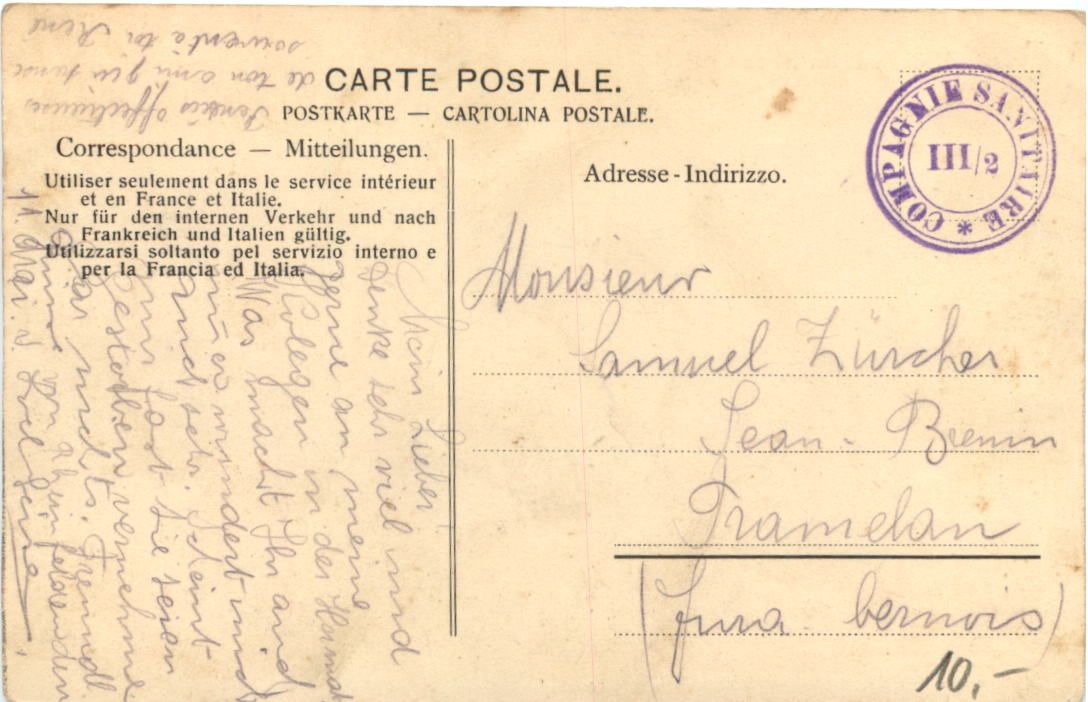 CARTE POSTALE.
POSTKARTE — CARTOLINA POSTALE.
Correspondance — Mitteilungen.
Utiliser seulement dans le service intérieur
et en France et Italie.
Nur für den internen Verkehr und nach
Frankreich und Italien gültig.
Utilizzarsi soltanto pel servizio interno e
per la Francia ed Italia.
Adresse - Indirizzo.
COMPAGNIE SANITAIRE *
III/2
Monsieur
Samuel Zürcher
Jean-Brenin
Tramelan
(Jura bernois)
10.-
Mein Lieber,
denke sehr viel und
gerne an meine
Kolegen in der
Was macht Ihr
wundert mich
auch sehr. Scheint
mir fast Sie seien
gestorben, vernehme
gar nichts. Freundl.
11. Mai
Pensées affectueuses
de ton ami qui pense
souvent à toi René